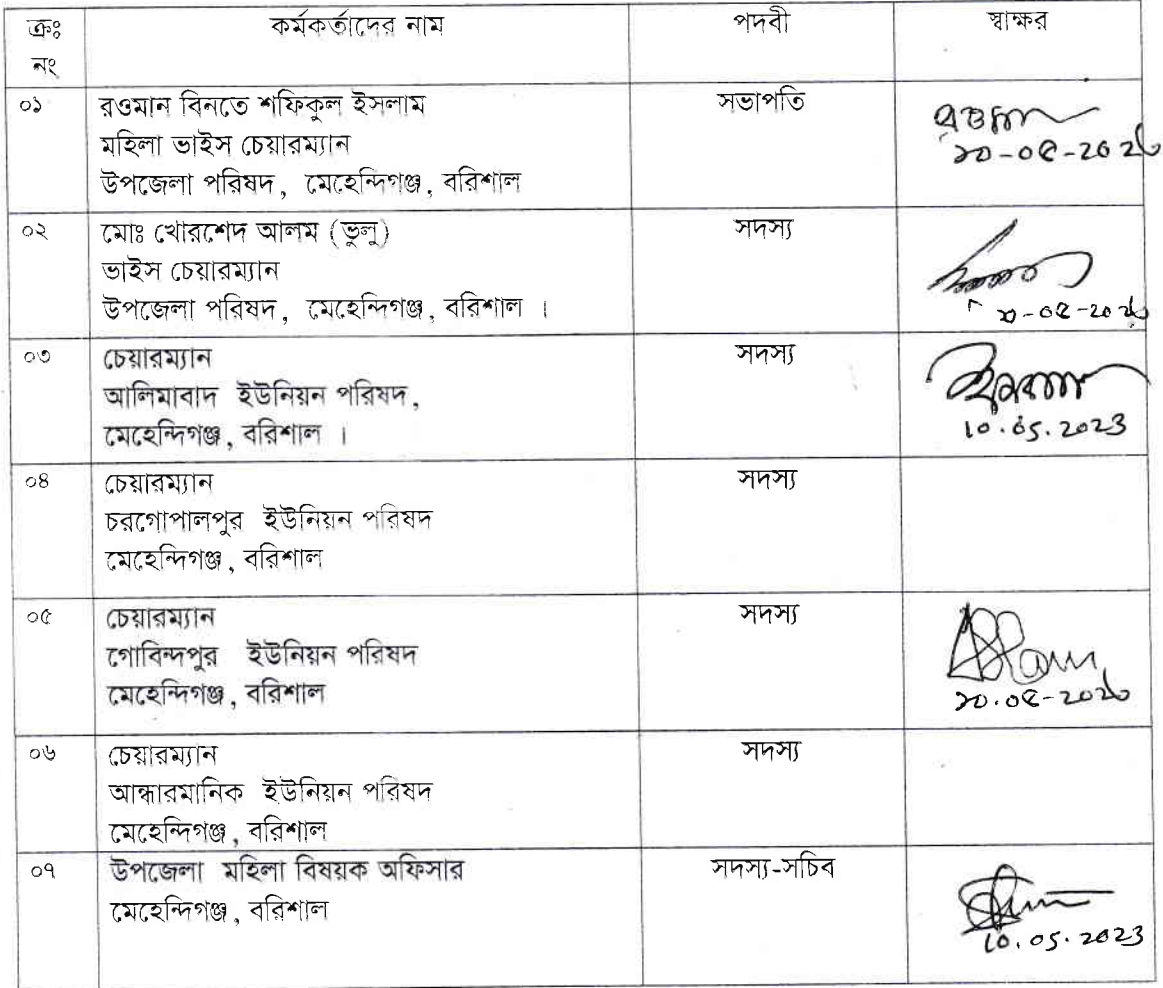 ক্রঃ নং কর্মকর্তাদের নাম পদবী স্বাক্ষর
০১ রওমান বিনতে শফিকুল ইসলাম সভাপতি
মহিলা ভাইস চেয়ারম্যান
উপজেলা পরিষদ, মেহেন্দিগঞ্জ, বরিশাল
১০-০৫-২০২৩
০২ মোঃ খোরশেদ আলম (ভুলু) সদস্য
ভাইস চেয়ারম্যান
উপজেলা পরিষদ, মেহেন্দিগঞ্জ, বরিশাল ।
১০-০৫-২০২৩
০৩ চেয়ারম্যান সদস্য
আলিমাবাদ ইউনিয়ন পরিষদ,
মেহেন্দিগঞ্জ, বরিশাল ।
10.05.2023
০৪ চেয়ারম্যান সদস্য
চরগোপালপুর ইউনিয়ন পরিষদ
মেহেন্দিগঞ্জ, বরিশাল
০৫ চেয়ারম্যান সদস্য
গোবিন্দপুর ইউনিয়ন পরিষদ
মেহেন্দিগঞ্জ, বরিশাল
১০.০৫-২০২৩
০৬ চেয়ারম্যান সদস্য
আন্ধারমানিক ইউনিয়ন পরিষদ
মেহেন্দিগঞ্জ, বরিশাল
০৭ উপজেলা মহিলা বিষয়ক অফিসার সদস্য-সচিব
মেহেন্দিগঞ্জ, বরিশাল
10.05.2023